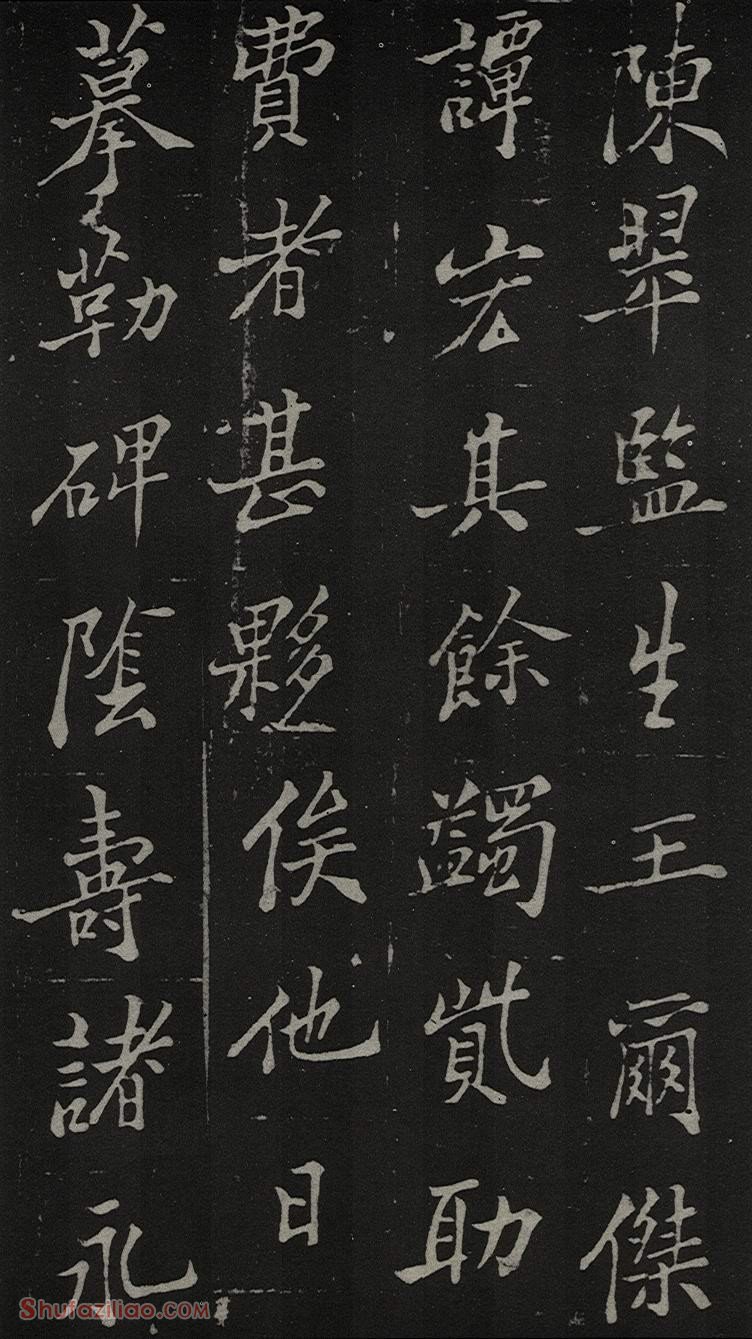 陳翠監生王爾傑
譚宏其餘蠲貲助
費者甚夥俟他日
摹勒碑陰壽諸永
Shufaziliao.com